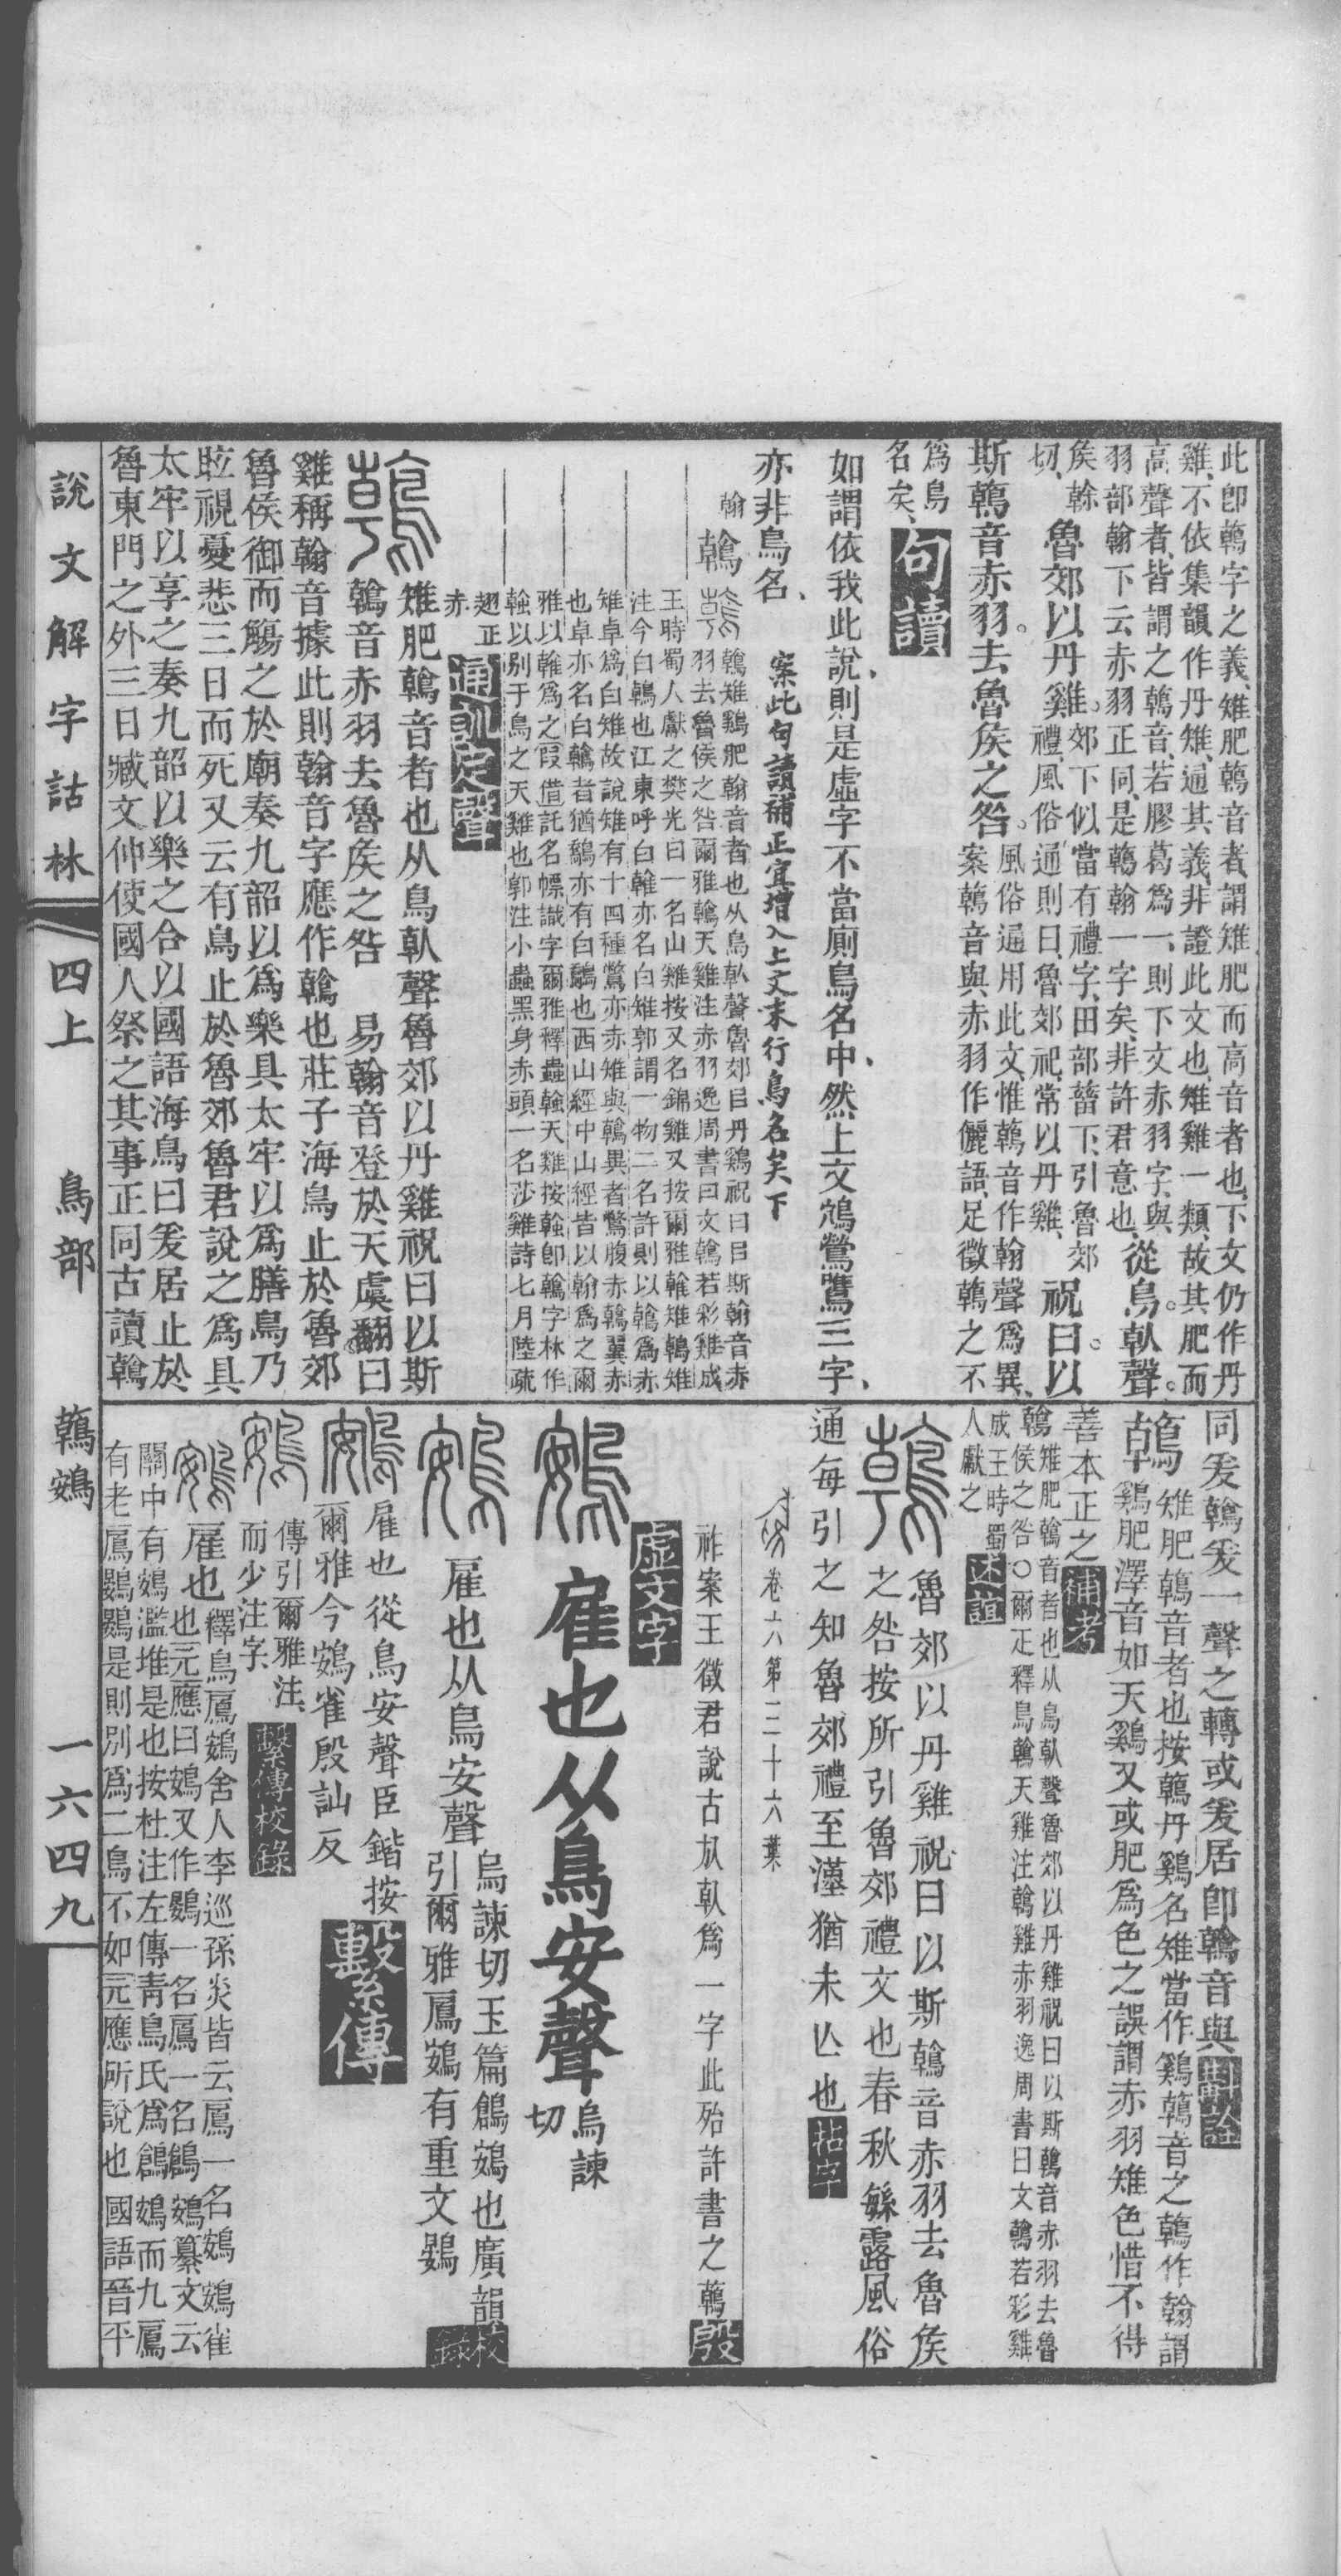 此卽鶾字之義、雉肥鶾音者、謂雉肥而高音者也、下文仍作丹
雞、不依集韻作丹雉、通其義、非證此文也、雉雞一類、故其肥而
高聲者、皆謂之鶾音、若膠葛爲一、則下文赤羽字、與
羽部翰下云赤羽正同、是鶾翰一字矣、非許君意也、從鳥倝聲。
矦榦切、魯郊以丹雞。郊下似當有禮字、田部䉤下、引魯郊禮、風俗通則曰、魯郊祀常以丹雞、祝曰。以
斯鶾音赤羽。去魯矦之咎。風俗通用此文、惟鶾音作翰聲爲異、案鶾音與赤羽作儷語、足徵鶾之不
爲鳥名矣、句讀
如謂依我此說、則是虛字不當廁鳥名中、然上文鴆鶯鷹三字、
亦非鳥名、案此句讀補正宜增入上文末行鳥名矣下
翰 鶾 鶾雉鷄肥翰音者也从鳥倝聲魯郊㠯丹鷄祝曰㠯斯翰音赤
羽去魯侯之咎爾雅鶾天雞注赤羽逸周書曰文鶾若彩雞成
王時蜀人獻之樊光曰一名山雞按又名錦雞又按爾雅鶾雉鵫雉
注今白鵫也江東呼白鶾亦名白雉郭謂一物二名許則以鶾爲赤
雉卓爲白雉故說雉有十四種鷩亦赤雉與鶾異者鷩腹赤鶾翼赤
也卓亦名白鶾者猶鷮亦有白鷮也西山經中山經皆以翰爲之爾
雅以鶾爲之叚借託名幖識字爾雅釋蟲螒天雞按螒卽鶾字林作
螒以別于鳥之天雞也郭注小蟲黑身赤頭一名莎雞詩七月陸疏
翅正赤 通訓定聲
雉肥鶾音者也从鳥倝聲魯郊以丹雞祝曰以斯
鶾音赤羽去魯矦之咎 易翰音登於天虞翻曰
雞稱翰音據此則翰音字應作鶾也莊子海鳥止於魯郊
魯侯御而觴之於廟奏九韶以爲樂具太牢以爲膳鳥乃
眩視憂悲三日而死又云有鳥止於魯郊魯君說之爲具
太牢以享之奏九韶以樂之合以國語海鳥曰爰居止於
魯東門之外三日臧文仲使國人祭之其事正同古讀鶾
同爰鶾爰一聲之轉或爰居卽鶾音與 斠詮
鶾 雉肥鶾音者也按鶾丹鷄名雉當作鷄鶾音之鶾作翰謂
鷄肥澤音如天鷄又或肥爲色之誤謂赤羽雉色惜不得
善本正之 補考
鶾雉肥鶾音者也从鳥倝聲魯郊以丹雞祝曰以斯鶾音赤羽去魯
侯之咎○爾疋釋鳥鶾天雞注鶾雞赤羽逸周書曰文鶾若彩雞
成王時蜀人獻之 述誼
魯郊以丹雞祝曰以斯鶾音赤羽去魯矦
之咎按所引魯郊禮文也春秋蘇露風俗
通每引之知魯郊禮至漢猶未亾也 拈字
卷六第二十六葉
祚案王徵君說古㫃倝爲一字此殆許書之鶾 殷
虛文字
鴳 雇也从鳥安聲 烏諫切
雇也从鳥安聲 烏諫切玉篇鶬鴳也廣韻引爾雅鳸鴳有重文鷃 校錄
雇也從鳥安聲臣鍇按
爾雅今鴳雀殷訕反 繫傳
傳引爾雅注、
而少注字、 繫傳校錄
雇也 釋鳥鳸鴳舍人李巡孫炎皆云鳸一名鴳鴳雀
也元應曰鴳又作鷃一名鳸一名鶬鴳纂文云
關中有鴳濫堆是也按杜注左傳青鳥氏爲鶬鴳而九鳸
有老鳸鷃鷃是則別爲二鳥不如元應所說也 國語晉平
說文解字詁林 四上 鳥部 鶾鴳 一六四九